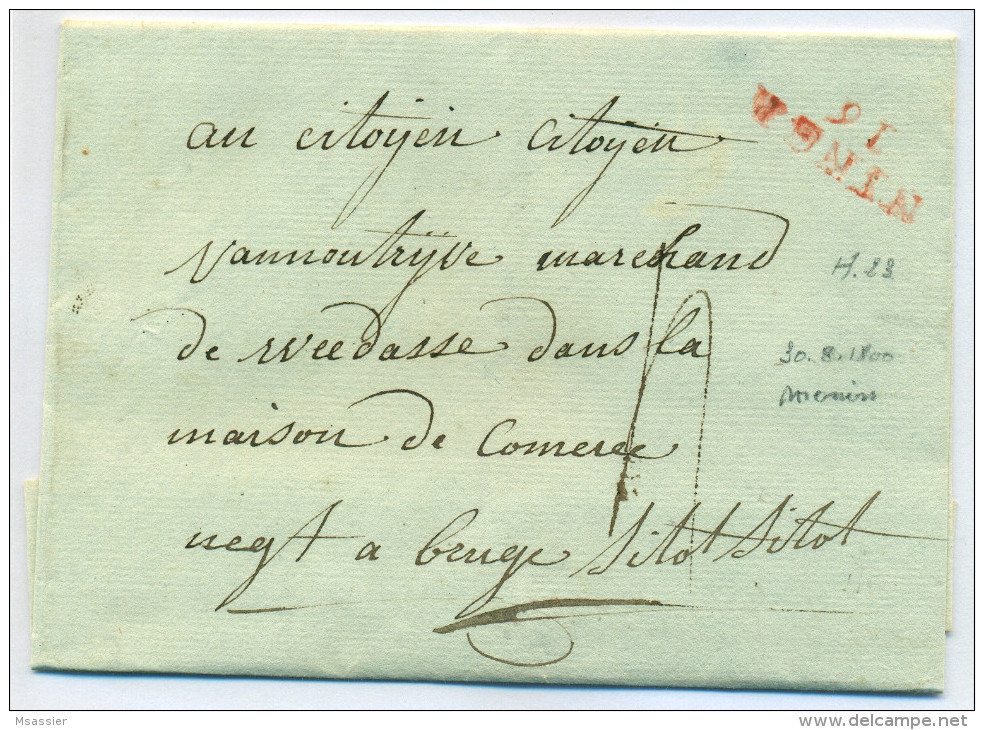 91
MENIN
au citoyen citoyen
vannoutryve marchand
de weedasse dans la
maison de Comerce
negt a bruge sitot sitot
H.23
30.8.1800
Menin
Msassier
www.delcampe.net